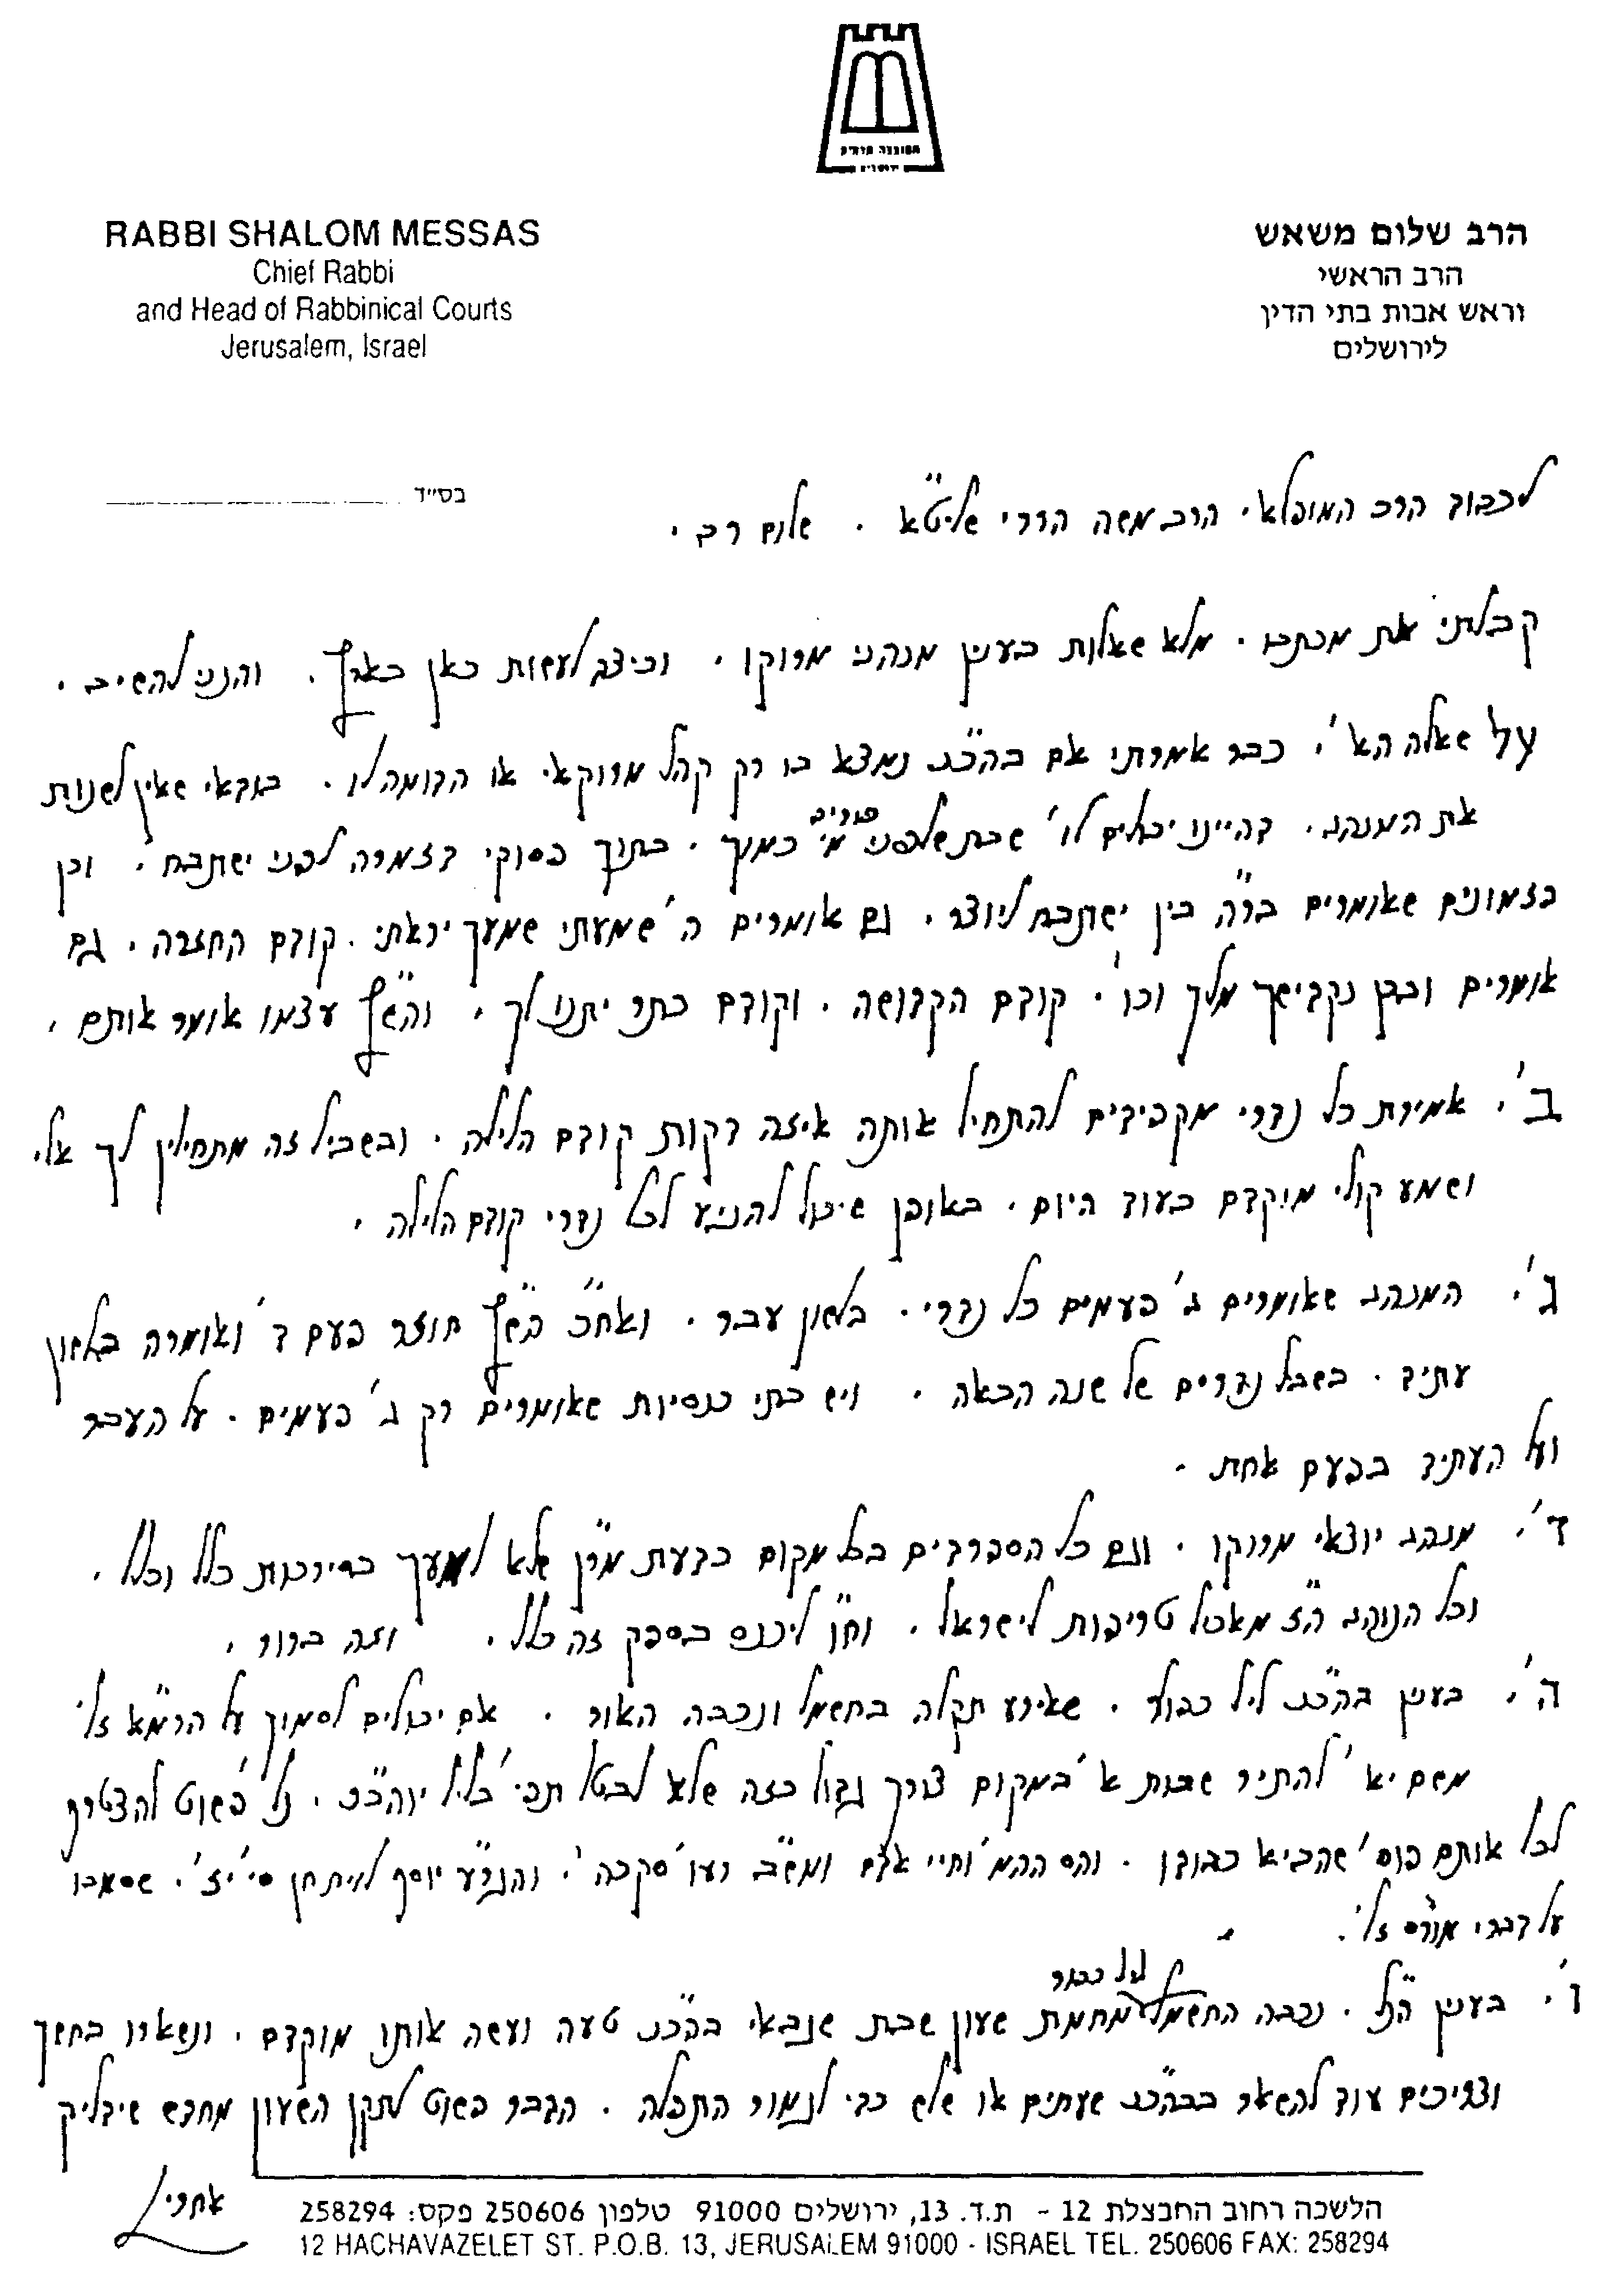 המועצה הדתית
ירושלים
RABBI SHALOM MESSAS
Chief Rabbi
and Head of Rabbinical Courts
Jerusalem, Israel
הרב שלום משאש
הרב הראשי
וראש אבות בתי הדין
לירושלים
בס"ד
לכבוד הרב המופלא, הרב משה הררי שליט"א. שלום רב,
קבלתי את מכתבו. מלא שאלות בענין מנהגי מרוקו, וכיצד לעשות כאן בארץ. והנני להשיב,
על שאלה הא', כבר אמרתי אם בהכ"נ נמצא בו רק קהל מרוקאי או הדומה לו. בודאי שאין לשנות
את המנהג. דהיינו שבת שלפני פורים מי כמוך. בתוך פסוקי דזמרה לפני ישתבח, וכן
בזמונים שאומרים בר"ה בין ישתבח ליוצר, גם אומרים ה' שמעתי שמעך יראתי. קודם החזרה, גם
אומרים ובכן נקדישך מלך וכו'. קודם הקדושה, וקודם כתר יתנו לך, והש"ץ עצמו אומר אותם,
ב', אמירת כל נדרי מקפידים להתחיל אותה איזה דקות קודם הלילה. ובשביל זה מתחילין לך אלי
ושמע קולי מוקדם בעוד היום, באופן שיכול להגיע לכל נדרי קודם הלילה,
ג', המנהג שאומרים ג' פעמים כל נדרי. בלשון עבר. ואח"כ הש"ץ חוזר פעם ד' ואומרה בלשון
עתיד. בשביל נדרים של שנה הבאה. ויש בתי כנסיות שאומרים רק ג' פעמים. על העבר
ועל העתיד בפעם אחת.
ד', מנהג יוצאי מרוקו. וגם כל הספרדים בכל מקום כדעת מר"ן שלא למעך בסירכות כלל וכלל,
וכל הנוהג הז מאכיל טריפות לישראל, וח"ו ליכנס בספק זה כלל, וזה ברור,
ה', בענין בהכ"נ ליל כפור. שאירע תקלה בחשמל ונכבה האור. אם יכולים לסמוך על הרמ"א ז"ל
משם י"א להתיר שבות א' במקום צורך גדול כזה שלא לבטל תפי' בליל יוהכ"פ. נ"ל פשוט להצטרף
לכל אותם פוס' שהביא כבודו. והם החיי אדם ומש"ב רעו' סקכה', והגר"ע יוסף סי' יז'. שסמכו
על דברי מור"ם ז"ל.
ו', בענין הנ"ל. נכבה החשמל ליל כפור מחמת שעון שבת שגבאי בהכ"נ טעה ועשה אותו מוקדם, ונשארו בחשך
וצריכים עוד להשאר בבהכ"נ שעתים או שלש כדי לגמור התפלה. הדבר פשוט לתקן השעון מחדש שידליק
אחרי
הלשכה רחוב החבצלת 12 - ת.ד. 13, ירושלים 91000 טלפון 250606 פקס: 258294
12 HACHAVAZELET ST. P.O.B. 13, JERUSALEM 91000 - ISRAEL TEL. 250606 FAX: 258294